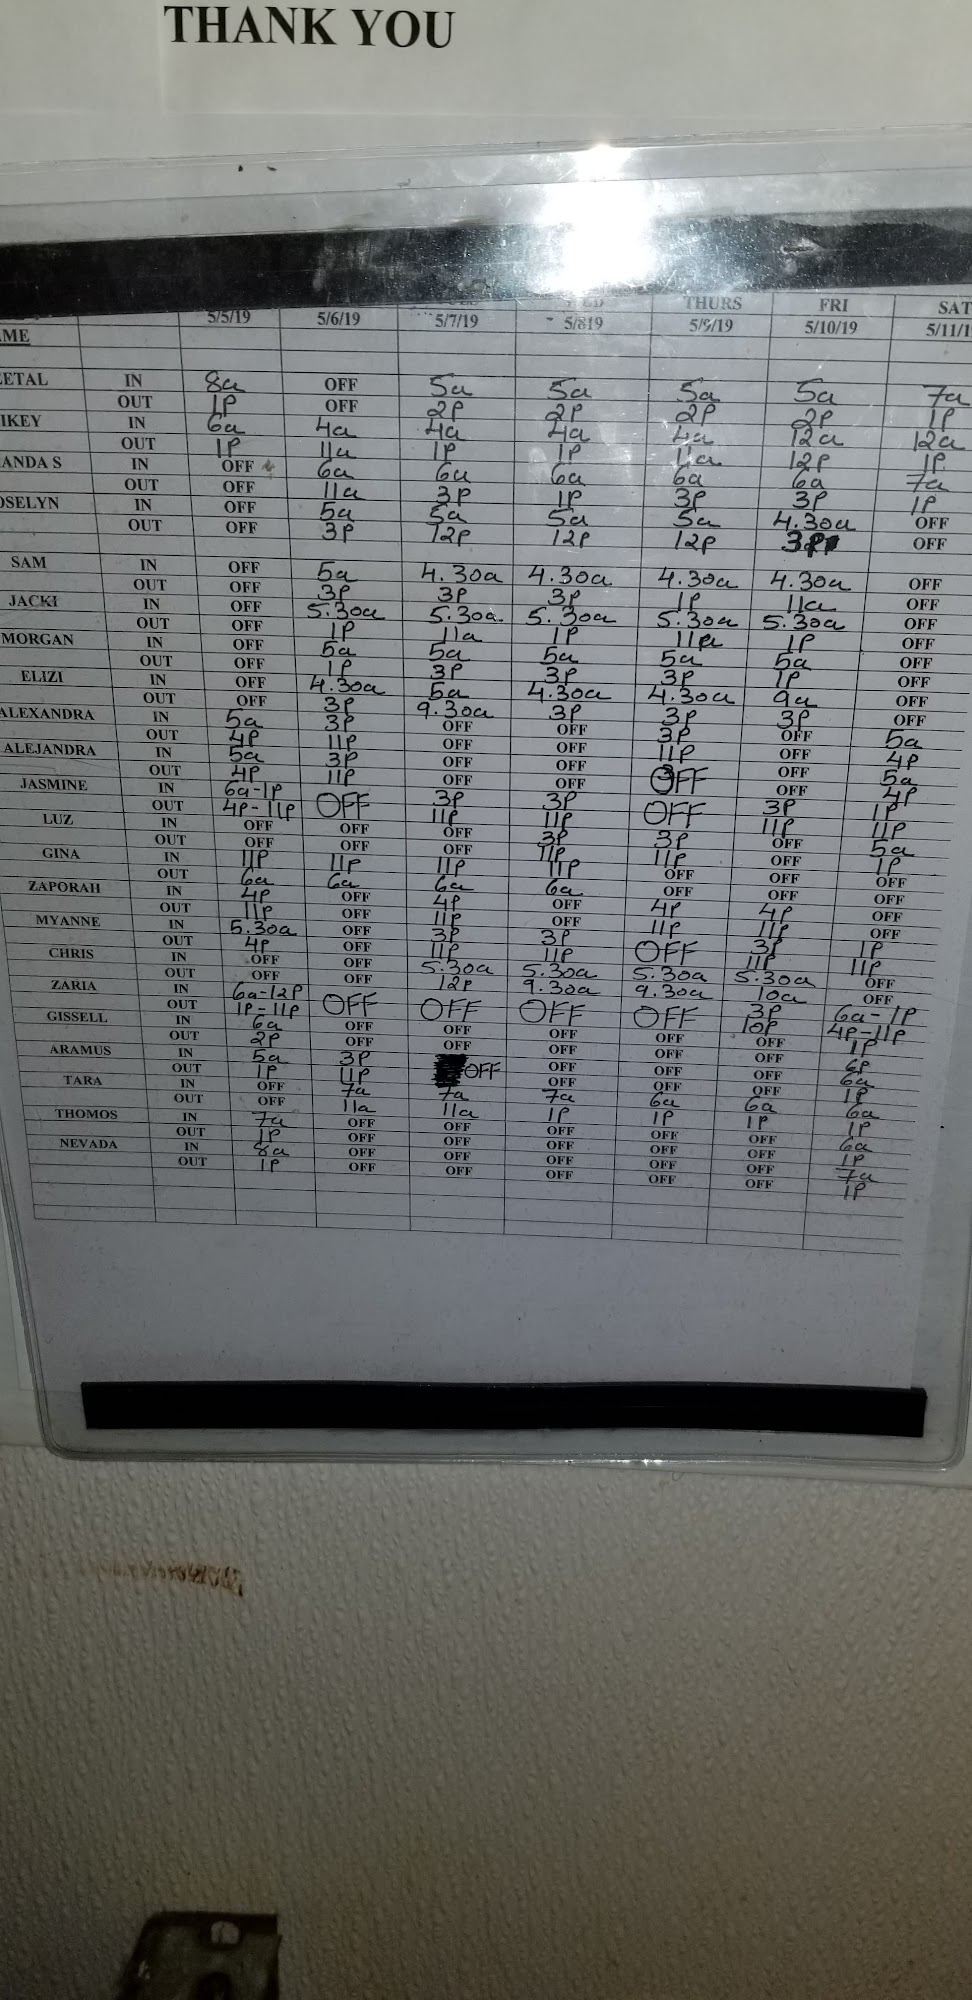 THANK YOU
THURS FRI SAT
5/5/19 5/6/19 5/7/19 5/819 5/9/19 5/10/19 5/11/1
AME
ETAL IN 8a OFF 5a 5a 5a 5a 7a
OUT 1P OFF 2P 2P 2P 2P 1P
IKEY IN 6a 4a 4a 4a 4a 12a 12a
OUT 1P 11a 1P 1P 11a 12P 1P
ANDA S IN OFF 6a 6a 6a 6a 6a 7a
OUT OFF 11a 3P 1P 3P 3P 1P
OSELYN IN OFF 5a 5a 5a 5a 4.30a OFF
OUT OFF 3P 12P 12P 12P 3P OFF
SAM IN OFF 5a 4.30a 4.30a 4.30a 4.30a OFF
OUT OFF 3P 3P 3P 1P 11a OFF
JACKI IN OFF 5.30a 5.30a 5.30a 5.30a 5.30a OFF
OUT OFF 1P 11a 1P 11a 1P OFF
MORGAN IN OFF 5a 5a 5a 5a 5a OFF
OUT OFF 1P 3P 3P 3P 1P OFF
ELIZI IN OFF 4.30a 5a 4.30a 4.30a 9a OFF
OUT OFF 3P 9.30a 3P 3P 3P OFF
ALEXANDRA IN 5a 3P OFF OFF 3P OFF 5a
OUT 4P 11P OFF OFF 11P OFF 4P
ALEJANDRA IN 5a 3P OFF OFF OFF OFF 5a
OUT 4P 11P OFF OFF OFF 4P
JASMINE IN 6a-1P OFF 3P 3P OFF 3P 1P
OUT 4P-11P 11P 11P 11P 11P
LUZ IN OFF OFF OFF 3P 3P OFF 5a
OUT OFF OFF OFF 11P 11P OFF 1P
GINA IN 11P 11P 11P 11P OFF OFF OFF
OUT 6a 6a 6a 6a OFF OFF OFF
ZAPORAH IN 4P OFF 4P OFF 4P 4P OFF
OUT 11P OFF 11P OFF 11P 11P OFF
MYANNE IN 5.30a OFF 3P 3P OFF 3P 1P
OUT 4P OFF 11P 11P 11P 11P
CHRIS IN OFF OFF 5.30a 5.30a 5.30a 5.30a OFF
OUT OFF OFF 12P 9.30a 9.30a 10a OFF
ZARIA IN 6a-12P OFF OFF OFF OFF 3P 6a-1P
OUT 1P-11P 10P 4P-11P
GISSELL IN 6a OFF OFF OFF OFF OFF 1P
OUT 2P OFF OFF OFF OFF OFF 6P
ARAMUS IN 5a 3P OFF OFF OFF OFF 6a
OUT 1P 11P OFF OFF OFF 1P
TARA IN OFF 7a 7a 7a 6a 6a 6a
OUT OFF 11a 11a 1P 1P 1P 1P
THOMOS IN 7a OFF OFF OFF OFF OFF 6a
OUT 1P OFF OFF OFF OFF OFF 1P
NEVADA IN 8a OFF OFF OFF OFF OFF 7a
OUT 1P OFF OFF OFF OFF OFF 1P